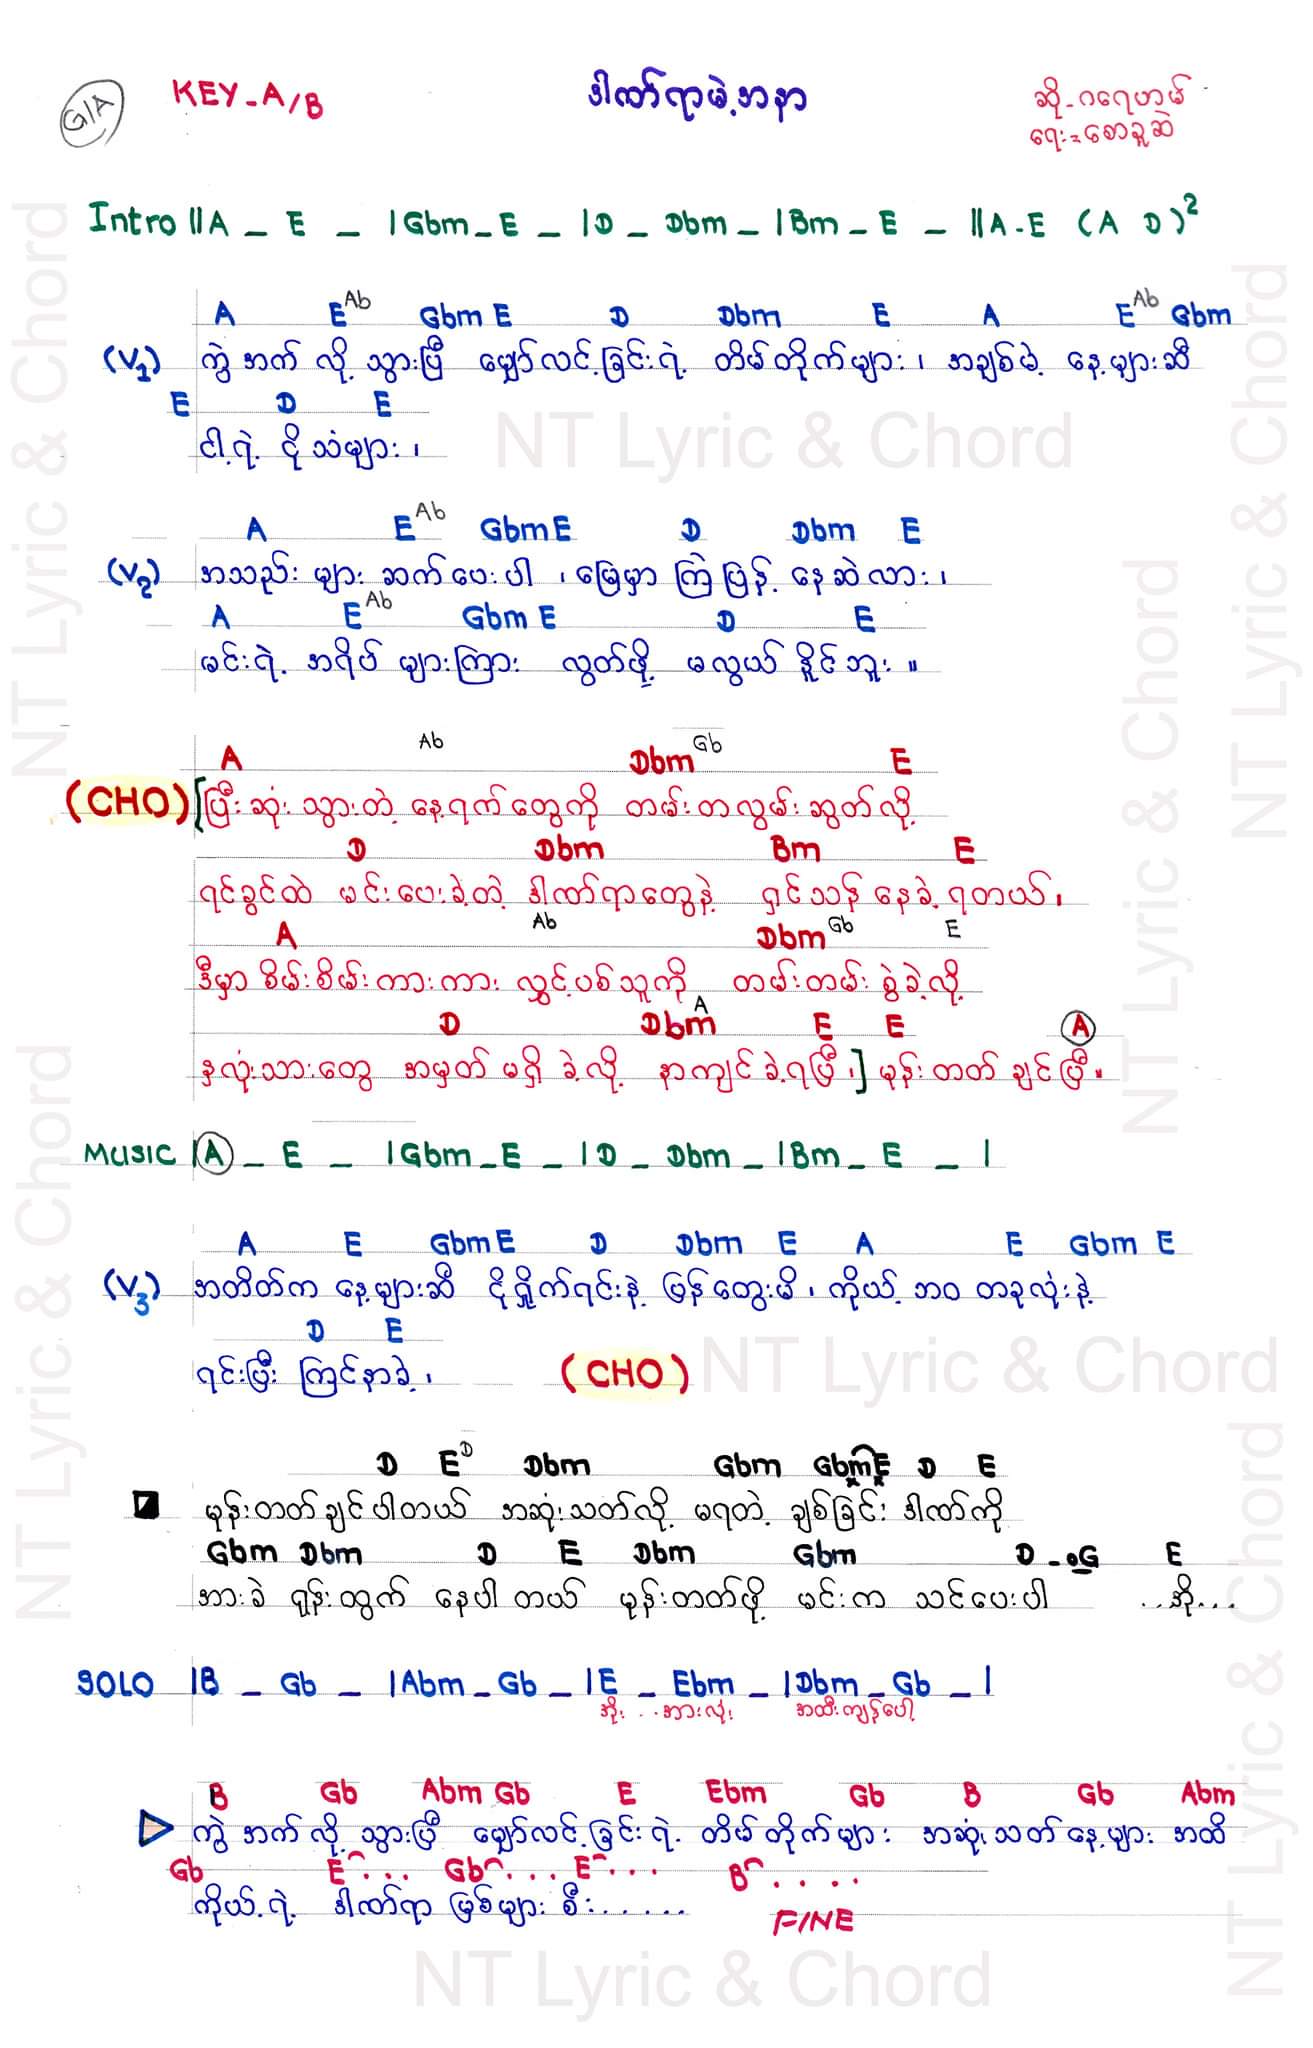 G/A KEY-A/B ဒါဏ်ရာမဲ့အနာ ဆို-ဂရေဟမ်
ရေး=စောခူဆဲ
Intro ||A _ E _ |Gbm _ E _ |D _ Dbm _ |Bm _ E _ ||A - E (A D)²
A E Ab Gbm E D Dbm E A E Ab Gbm
(V1) ကွဲအက်လို့သွားပြီ မျှော်လင့်ခြင်းရဲ့ တိမ်တိုက်များ၊ အချစ်မဲ့ နေ့များဆီ
E D E
ငါ့ရဲ့ ငိုသံများ၊
A E Ab Gbm E D Dbm E
(V2) အသည်းများ ဆက်ပေးပါ ၊မြေမှာ ကြဲပြန့် နေဆဲလား၊
A E Ab Gbm E D E
မင်းရဲ့ အရိပ်များကြား လွတ်ဖို့ မလွယ်နိူင်ဘူး ။
A Ab Dbm Gb E
(CHO) [ပြီးဆုံးသွားတဲ့ နေ့ရက်တွေကို တမ်းတလွမ်းဆွတ်လို့
D Dbm Bm E
ရင်ခွင်ထဲ မင်းပေးခဲ့တဲ့ ဒါဏ်ရာတွေနဲ့ ရှင်သန်နေခဲ့ရတယ်၊
A Ab Dbm Gb E
ဒီမှာ စိမ်းစိမ်းကားကား လွှင့်ပစ်သူကို တမ်းတမ်းစွဲခဲ့လို့
D Dbm A E E A
နှလုံးသားတွေ အမှတ်မရှိခဲ့လို့ နာကျင်ခဲ့ရပြီ၊] မုန်းတတ်ချင်ပြီ။
MUSIC |A _ E _ |Gbm _ E _ |D _ Dbm _ |Bm _ E _ |
A E Gbm E D Dbm E A E Gbm E
(V3) အတိတ်က နေ့များဆီ ငိုရှိုက်ရင်းနဲ့ ပြန်တွေးမိ၊ ကိုယ့်ဘဝ တခုလုံးနဲ့
D E
ရင်းပြီး ကြင်နာခဲ့၊ (CHO)
D E D Dbm Gbm Gbm E D E
မုန်းတတ်ချင်ပါတယ် အဆုံးသတ်လို့ မရတဲ့ ချစ်ခြင်းဒါဏ်ကို
Gbm Dbm D E Dbm Gbm D - oG E
အားခဲ ရုန်းထွက် နေပါတယ် မုန်းတတ်ဖို့ မင်းက သင်ပေးပါ ...အို...
SOLO |B _ Gb _ |Abm _ Gb _ |E _ Ebm _ |Dbm _ Gb _ |
အိုး ...အားလုံး အထီးကျန်ပေါ့
B Gb Abm Gb E Ebm Gb B Gb Abm
ကွဲအက်လို့သွားပြီ မျှော်လင့်ခြင်းရဲ့ တိမ်တိုက်များ အဆုံးသတ်နေ့များ အထိ
Gb E.... Gb.... E.... B....
ကိုယ့်ရဲ့ ဒါဏ်ရာ မြစ်များ စီး......
FINE
NT Lyric & Chord